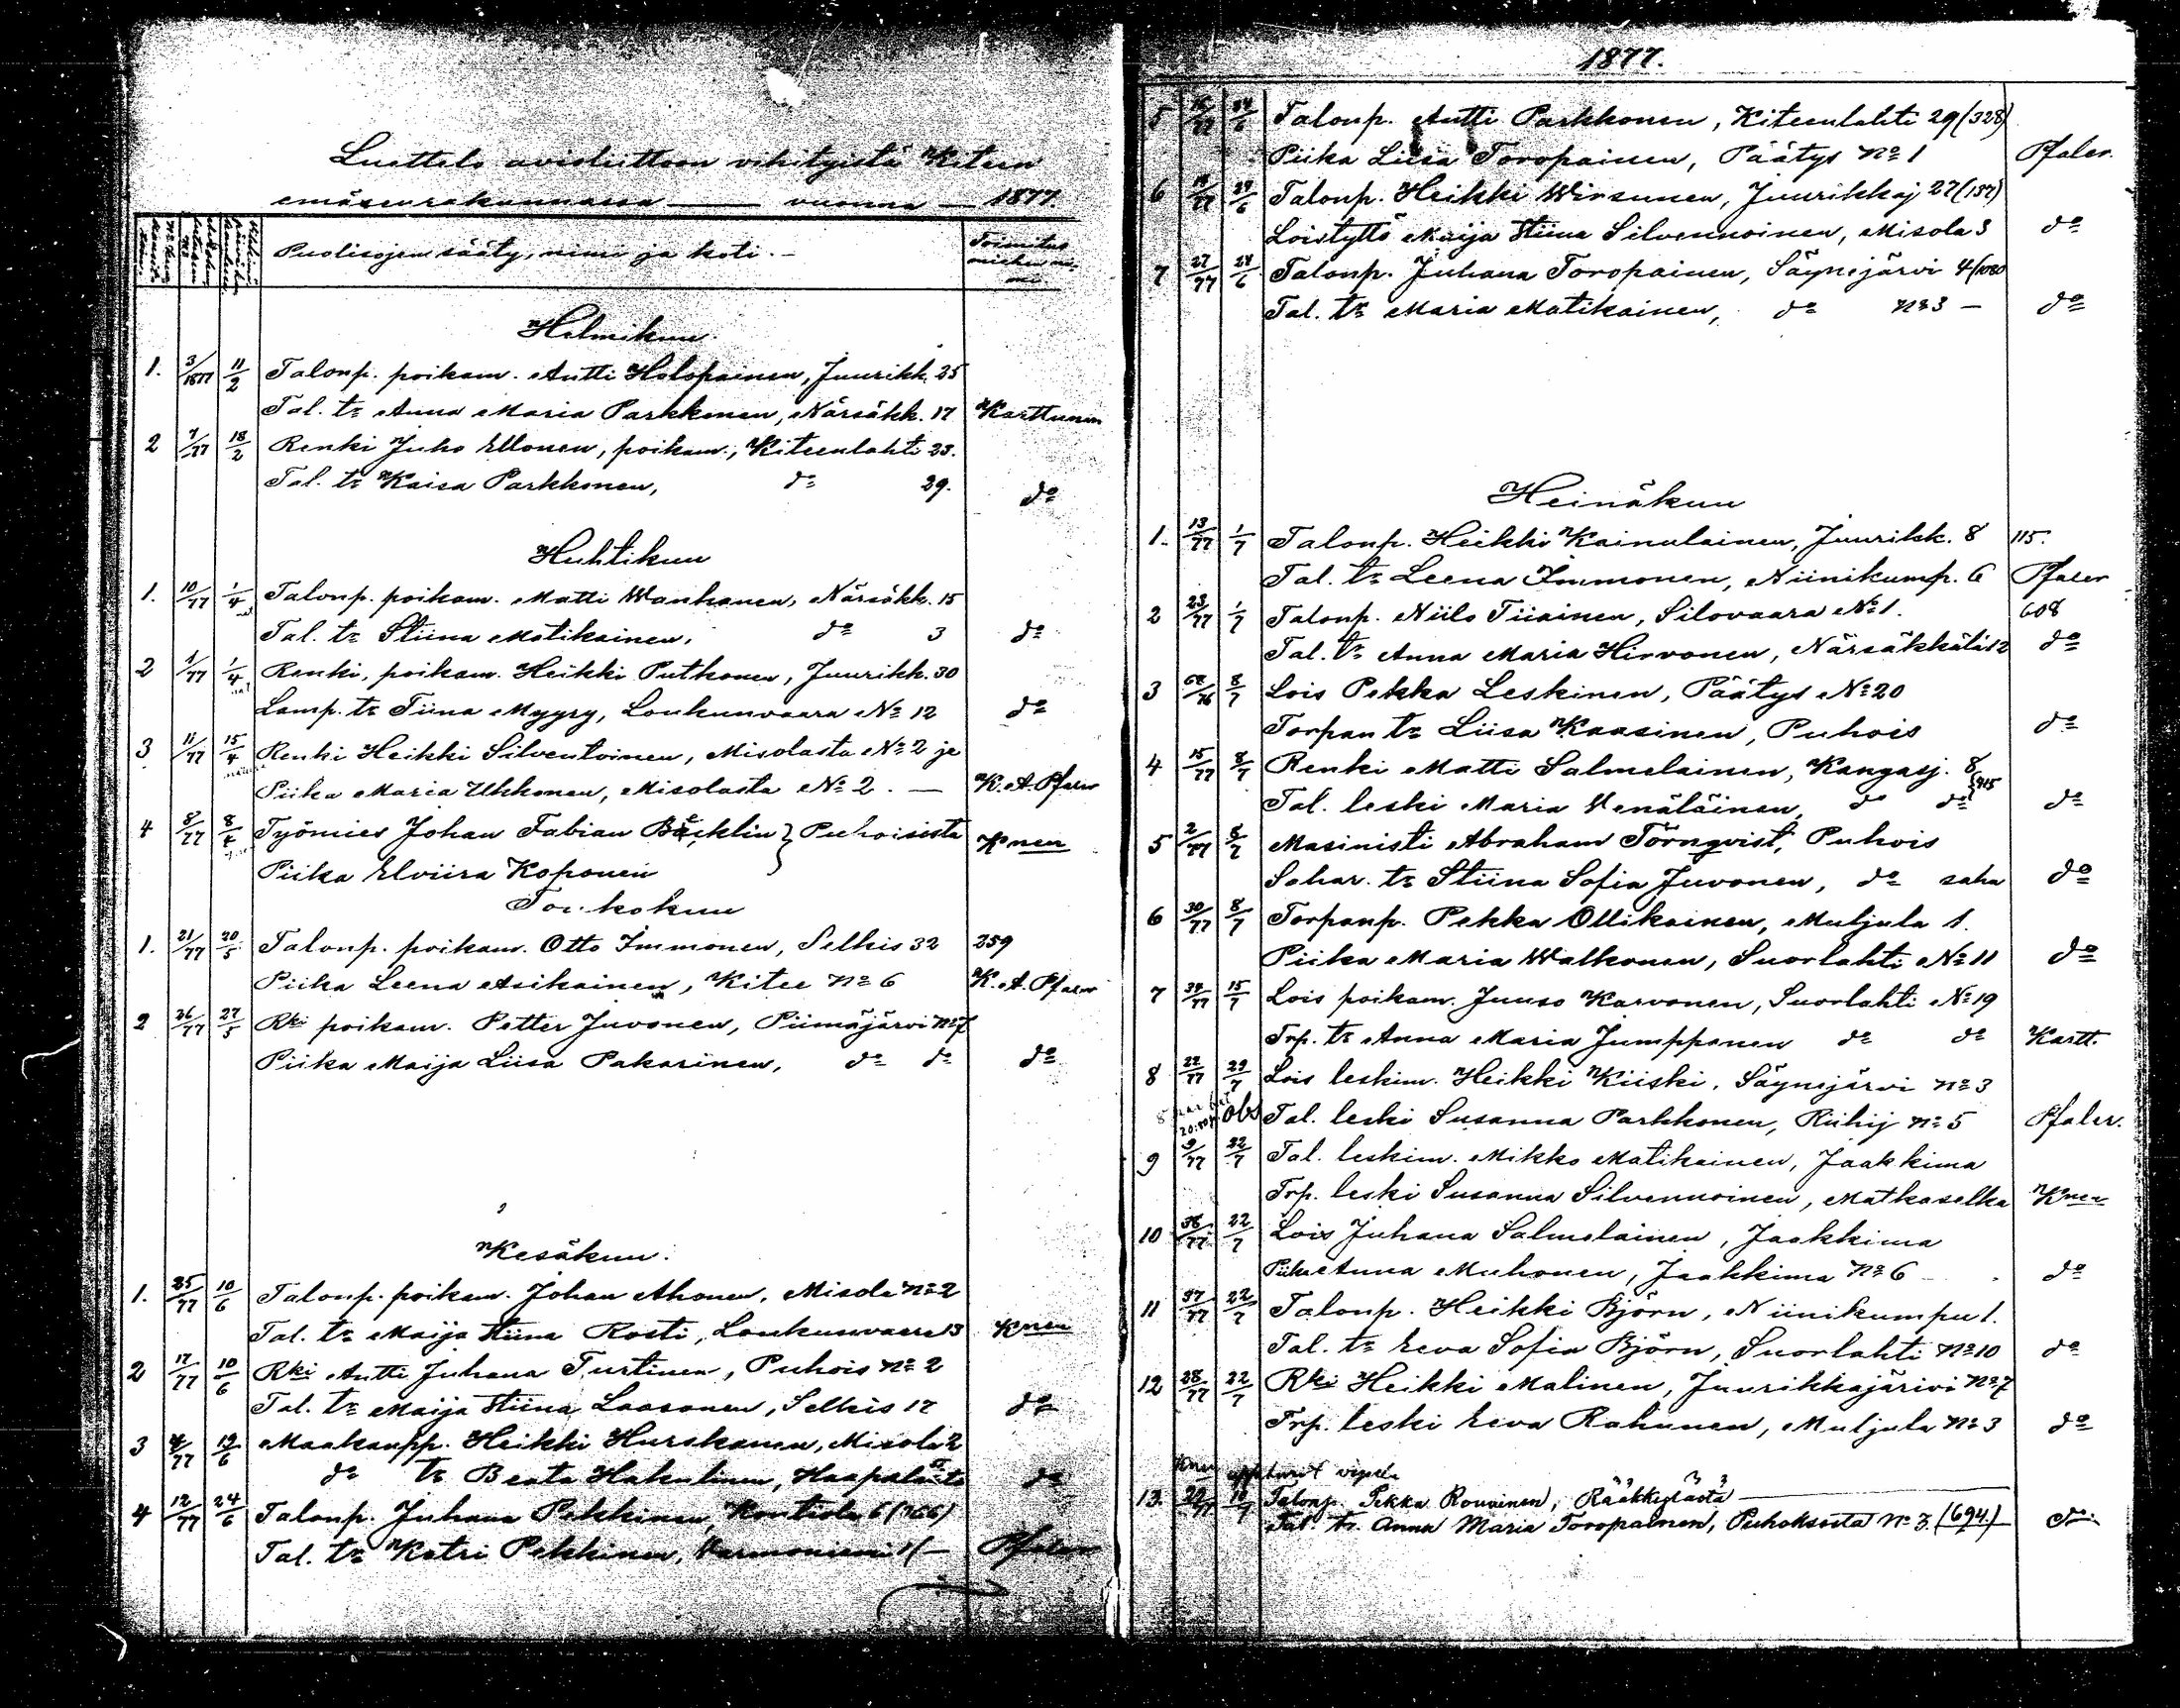 Luettelo avioliittoon vihityistä Kiteen
emäseurakunnassa — vuonna — 1877.
Puolisojen sääty, nimi ja koti. -
Toimitus
miehen ni-
mi.
Helmikuu.
1. 3/1877 11/2 Talonp. poikam. Antti Holopainen, Juurikk. 25
Tal. tr Anna Maria Parkkonen, Närsäkk. 17 Karttunen
2 7/77 18/2 Renki Juho Ellonen, poikam., Kiteenlahti 23.
Tal. tr Kaisa Parkkonen, do 29. do
Huhtikuu
1. 10/77 1/4 Talonp. poikam. Matti Wanhanen, Närsäkk. 15
Tal. tr Stiina Matikainen, do 3 do
2 1/77 1/4 Renki, poikam. Heikki Putkonen, Juurikk. 30
Lamp. tr Tiina Myyry, Loukunvaara No 12 do
3 11/77 15/4 Renki Heikki Silventoinen, Misolasta No 2 ja
Piika Maria Ukkonen, Misolasta No 2. — K. A. Pfaler
4 8/77 8/4 Työmies Johan Fabian Bäcklin } Puhoisista
Piika Elviira Koponen Knen
Toukokuu
1. 21/77 20/5 Talonp. poikam. Otto Immonen, Selkis 32 259
Piika Leena Asikainen, Kitee No 6 K. A. Pfaler
2 26/77 27/5 Rki poikam. Petter Juvonen, Piimäjärvi No 7
Piika Maija Liisa Pakarinen, do do do
Kesäkuu.
1. 35/77 10/6 Talonp. poikam. Johan Ahonen, Misola No 2
Tal. tr Maija Stiina Rosti, Loukunvaara 13 Knen
2 17/77 10/6 Rki Antti Juhana Turtinen, Puhois No 2
Tal. tr Maija Stiina Laasonen, Selkis 17 do
3 /77 19/6 Maakaupp. Heikki Hurskanen, Misola 2
do tr Beata Hakulinen, do
4 12/77 24/6 Talonp. Juhana Pekkinen, Kontiola 6 (766)
Tal. tr Katri Pekkinen, Varmoniemi 1(— Pfaler
1877.
5 16/77 24/6 Talonp. Antti Parkkonen, Kiteenlahti 29 (328)
Piika Liisa Toropainen, Päätys No 1 Pfaler.
6 /77 24/6 Talonp. Heikki Wirsunen, Juurikkaj 27 (137)
Loistyttö Maija Stiina Silvennoinen, Misola 3 do
7 27/77 24/6 Talonp. Juhana Toropainen, Säynejärvi 4/
Tal. tr Maria Matikainen, do No 3 — do
Heinäkuu
1. 13/77 1/7 Talonp. Heikki Kainulainen, Juurikk. 8 115.
Tal. tr Leena Immonen, Niinikump. 6 Pfaler
2 23/77 1/7 Talonp. Niilo Tiiainen, Silovaara No 1. 608
Tal. tr Anna Maria Hirvonen, Närsäkkälä 12 do
3 /76 8/7 Lois Pekka Leskinen, Päätys No 20
Torpan tr Liisa Kaasinen, Puhois do
4 15/77 8/7 Renki Matti Salmelainen, Kangasj. 8
Tal. leski Maria Venäläinen, do do do
5 2/77 8/7 Masinisti Abraham Törnqvist, Puhois
Sahar. tr Stiina Sofia Juvonen, do saha do
6 30/77 8/7 Torpanp. Pekka Ollikainen, Muljula 1.
Piika Maria Walkonen, Suorlahti No 11 do
7 34/77 15/7 Lois poikam. Juuso Karvonen, Suorlahti No 19
Trp. tr Anna Maria Jumpponen do do Kartt.
8 22/77 29/7 Lois leskim. Heikki Kiiski, Säynejärvi No 3
obs Tal. leski Susanna Parkkonen, Riihij No 5 Pfaler.
9 9/77 22/7 Tal. leskim. Mikko Matikainen, Jaakkima
Trp. leski Susanna Silvennoinen, Matkaselka Knen
10 38/77 22/7 Lois Juhana Salmelainen, Jaakkima
Piika Anna Muhonen, Jaakkima No 6 do
11 37/77 22/7 Talonp. Heikki Björn, Niinikumpu 1.
Tal. tr Eeva Sofia Björn, Suorlahti No 10 do
12 28/77 22/7 Rki Heikki Malinen, Juurikkajärivi No 7
Trp. leski Eeva Rahunen, Muljula No 3 do
13. Talonp. Pekka Rouvinen, Rääkkylästä
Tal. tr. Anna Maria Toropainen, Puhoksesta No 3. (694) do.